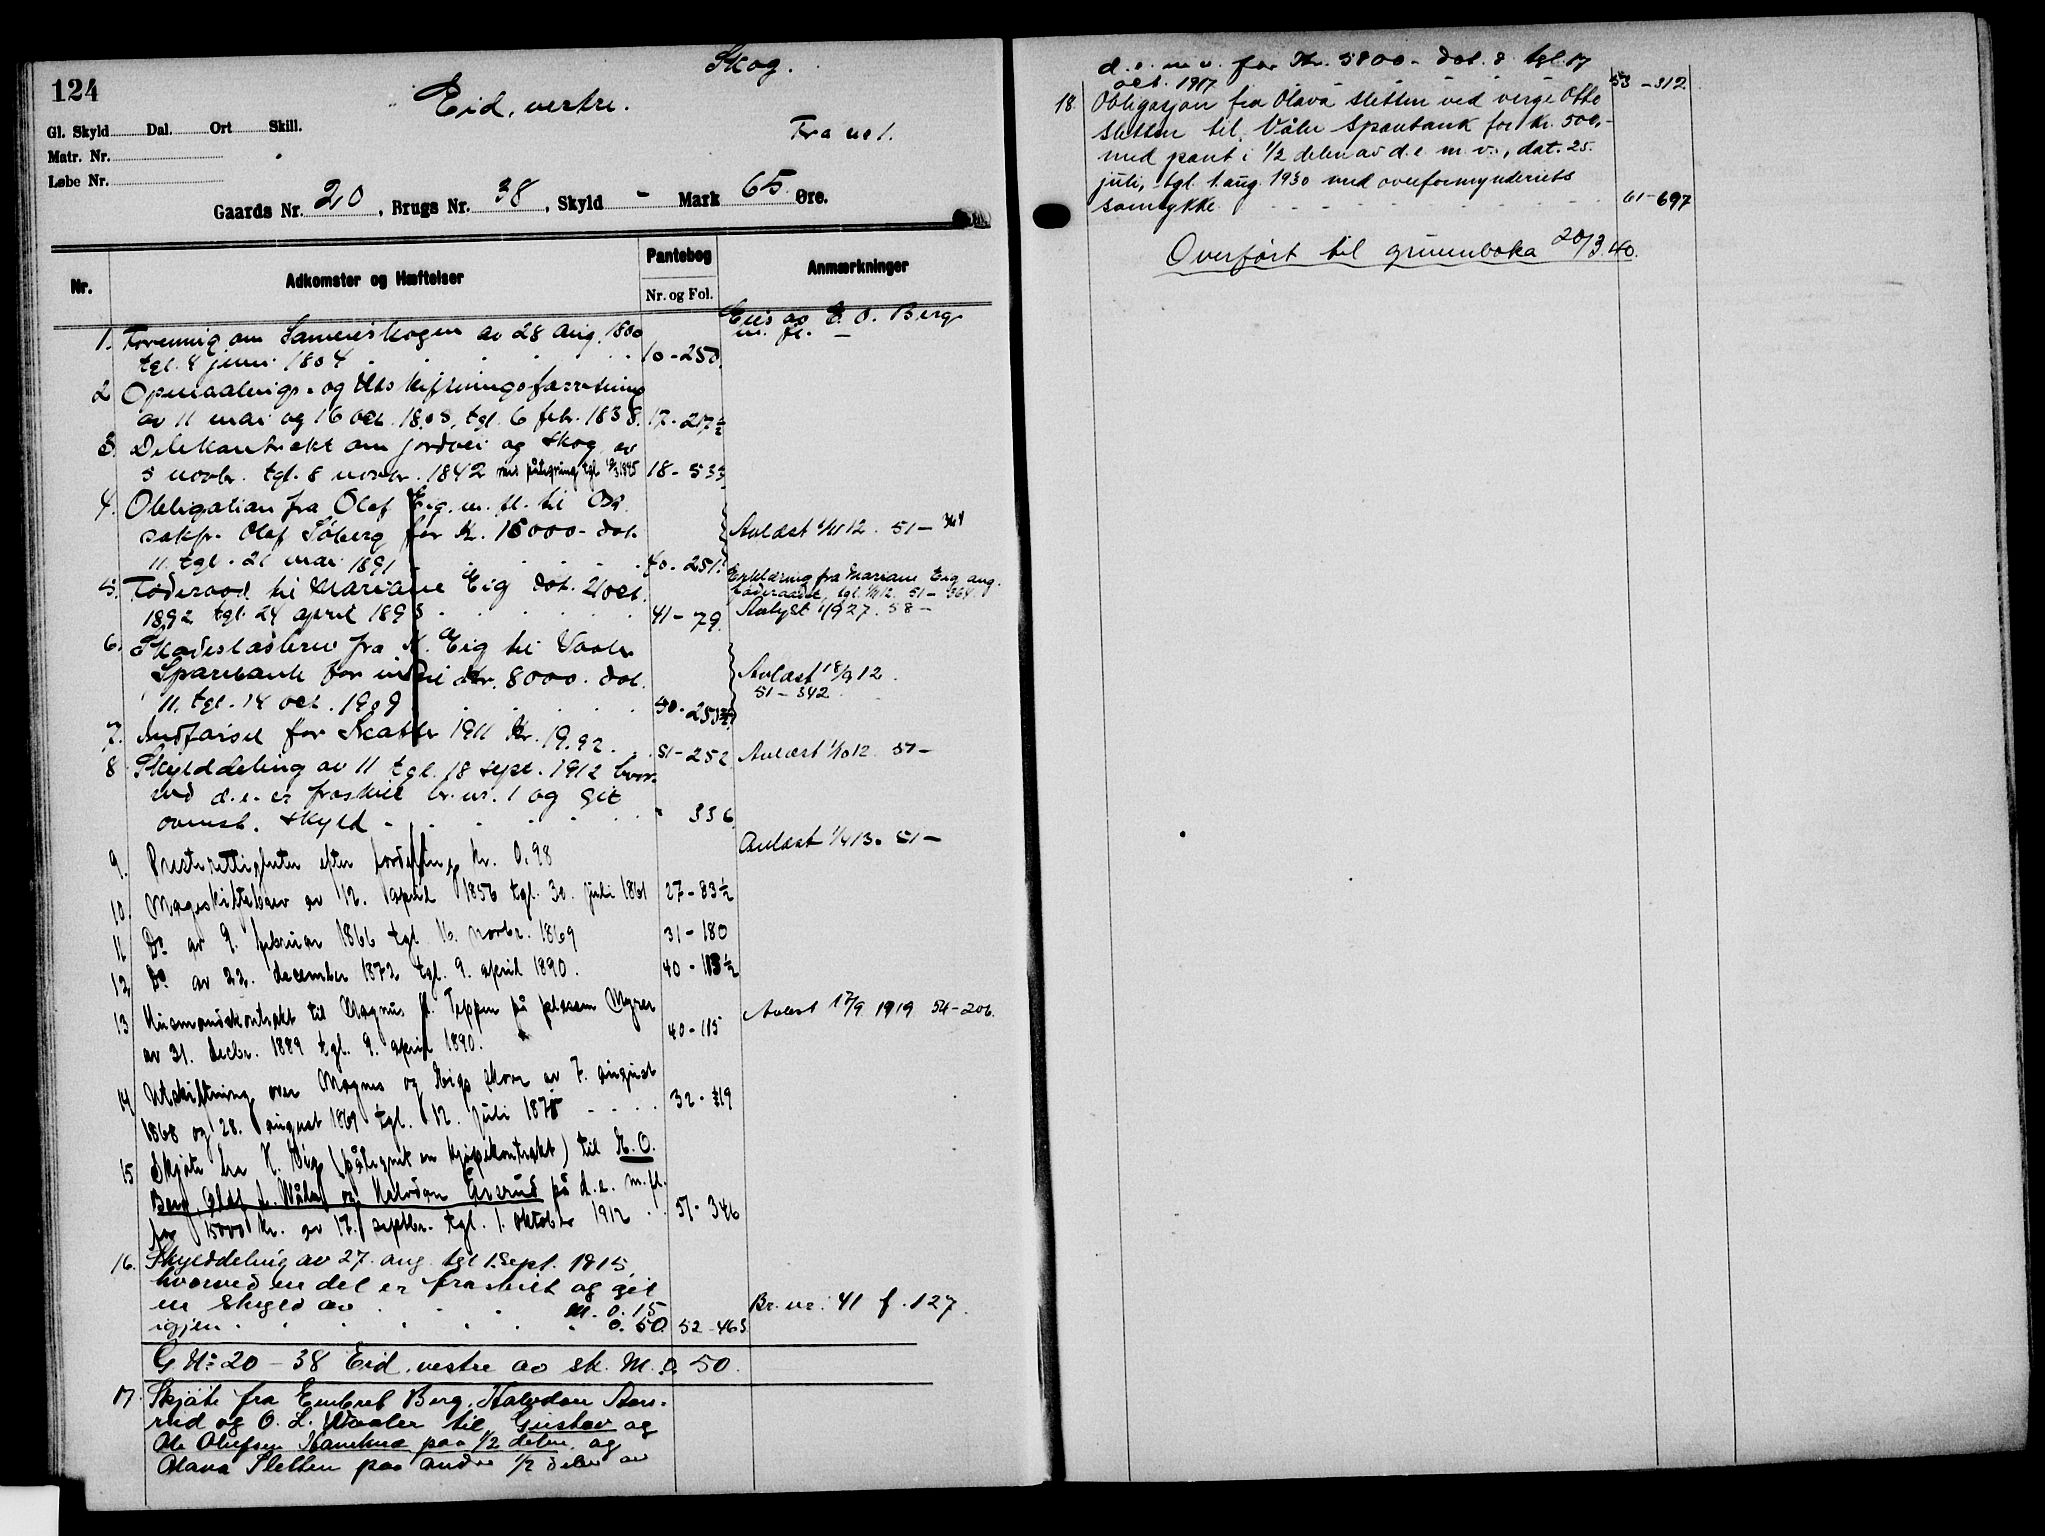 124
Skog.
Eid, vestre.
Gl. Skyld Dal. Ort Skill.
Fra no 1.
Matr. Nr.
Løbe Nr.
Gaards Nr. 20, Brugs Nr. 38, Skyld - Mark 65 Øre.
Nr. Adkomster og Hæftelser Pantebog Nr. og Fol. Anmærkninger
Eies av E. O. Berg
m. fl.
1. Forening om Sameieskogen av 28 aug. 1800
tgl. 4 juni 1804 10-250.
2 Opmaalings- og Utskiftningsforretning
av 11 mai og 16 oct. 1805, tgl. 6 febr. 1838. 17-217½
3. Delekontrakt om jordvei og skog av
5 novbr. tgl. 8 novbr. 1842 med påtegning tgl. 1845 18-533
4. Obligation fra Olaf Eig m. fl. til O.R.
sakf. Olaf Söberg for kr. 15000- dat. Avlæst 12. 51-364
11. tgl. 21 mai 1891 40-251.
5. Föderaad til Mariane Eig dat. 21 oct. Erklæring fra Mariane Eig ang.
föderaadet, tgl. 12. 51-364.
1892 tgl. 24 april 1893 41-79. Avlyst 1927. 58-
6. Skadeslösbrev fra K. Eig til Vaaler
Sparebank for indtil kr. 8000. dat. Avlæst 18/9 12.
51-342
11. tgl. 14 oct. 1909 50-253
7. Utförsel for Skatter 1911 kr. 19.92. 51-252 Avlæst 1/10 12. 51-
8 Skylddeling av 11 tgl. 18 sept. 1912 hvor-
ved d.e. er fraskilt br.nr. 1 og git
ovenst. skyld - " 336.
9. Presterettigheter efter fordeling kr. 0.98 Avlæst 1/4 13. 51-
10. Mageskiftebrev av 12. april 1856 tgl. 30. juli 1861 27-83½
11 Do av 9. februar 1866 tgl. 16. novbr. 1869 31-180
12 Do av 22. december 1872 tgl. 9. april 1890. 40-113½
13 Husmandskontrakt til Magnus H. Teppen på pladsen Myren Avlest 17/9 1919 54-206.
av 31. decbr. 1889 tgl. 9. april 1890. 40-115
14 Utskiftning over Magnes og Eigs skove av 7. august
1868 og 28. august 1869 tgl. 12. juli 1875 32-319
15 Skjöte fra K. Eig (påtegnet en kjöpekontrakt) til E. O.
Berg, Olaf L. Wåler og Halvdan Åserud på d.e. m.fl.
for 15000 kr. av 17. septbr. tgl. 1. oktober 1912 51-346
16. Skylddeling av 27. aug. tgl. 1. Sept. 1915,
hvorved en del er fraskilt og git
en skyld av M. 0.15 Br. nr. 41 f. 127.
igjen 0.50. 52-463
G. No 20-38 Eid, vestre av sk. M. 0.50.
17. Skjöte fra Embret Berg, Halvdan Aase-
rud og O. L. Vaaler til Gustav og
Ole Olufsen Hanehus paa 1/2 delen og
Olava Sletten paa andre 1/2 delen av
d. e. m. v. for Kr. 5800- dat. 8 tgl. 17
oct. 1917 53-312
18. Obligasjon fra Olava Sletten ved verge Otto
Sletten til Våler Sparebank for kr. 500,-
med pant i 1/2 delen av d.e. m. v., dat. 25.
juli, tgl. 1. aug. 1930 med overformynderiets
samtykke. 61-697
Overført til grunnboka 20/3.40.